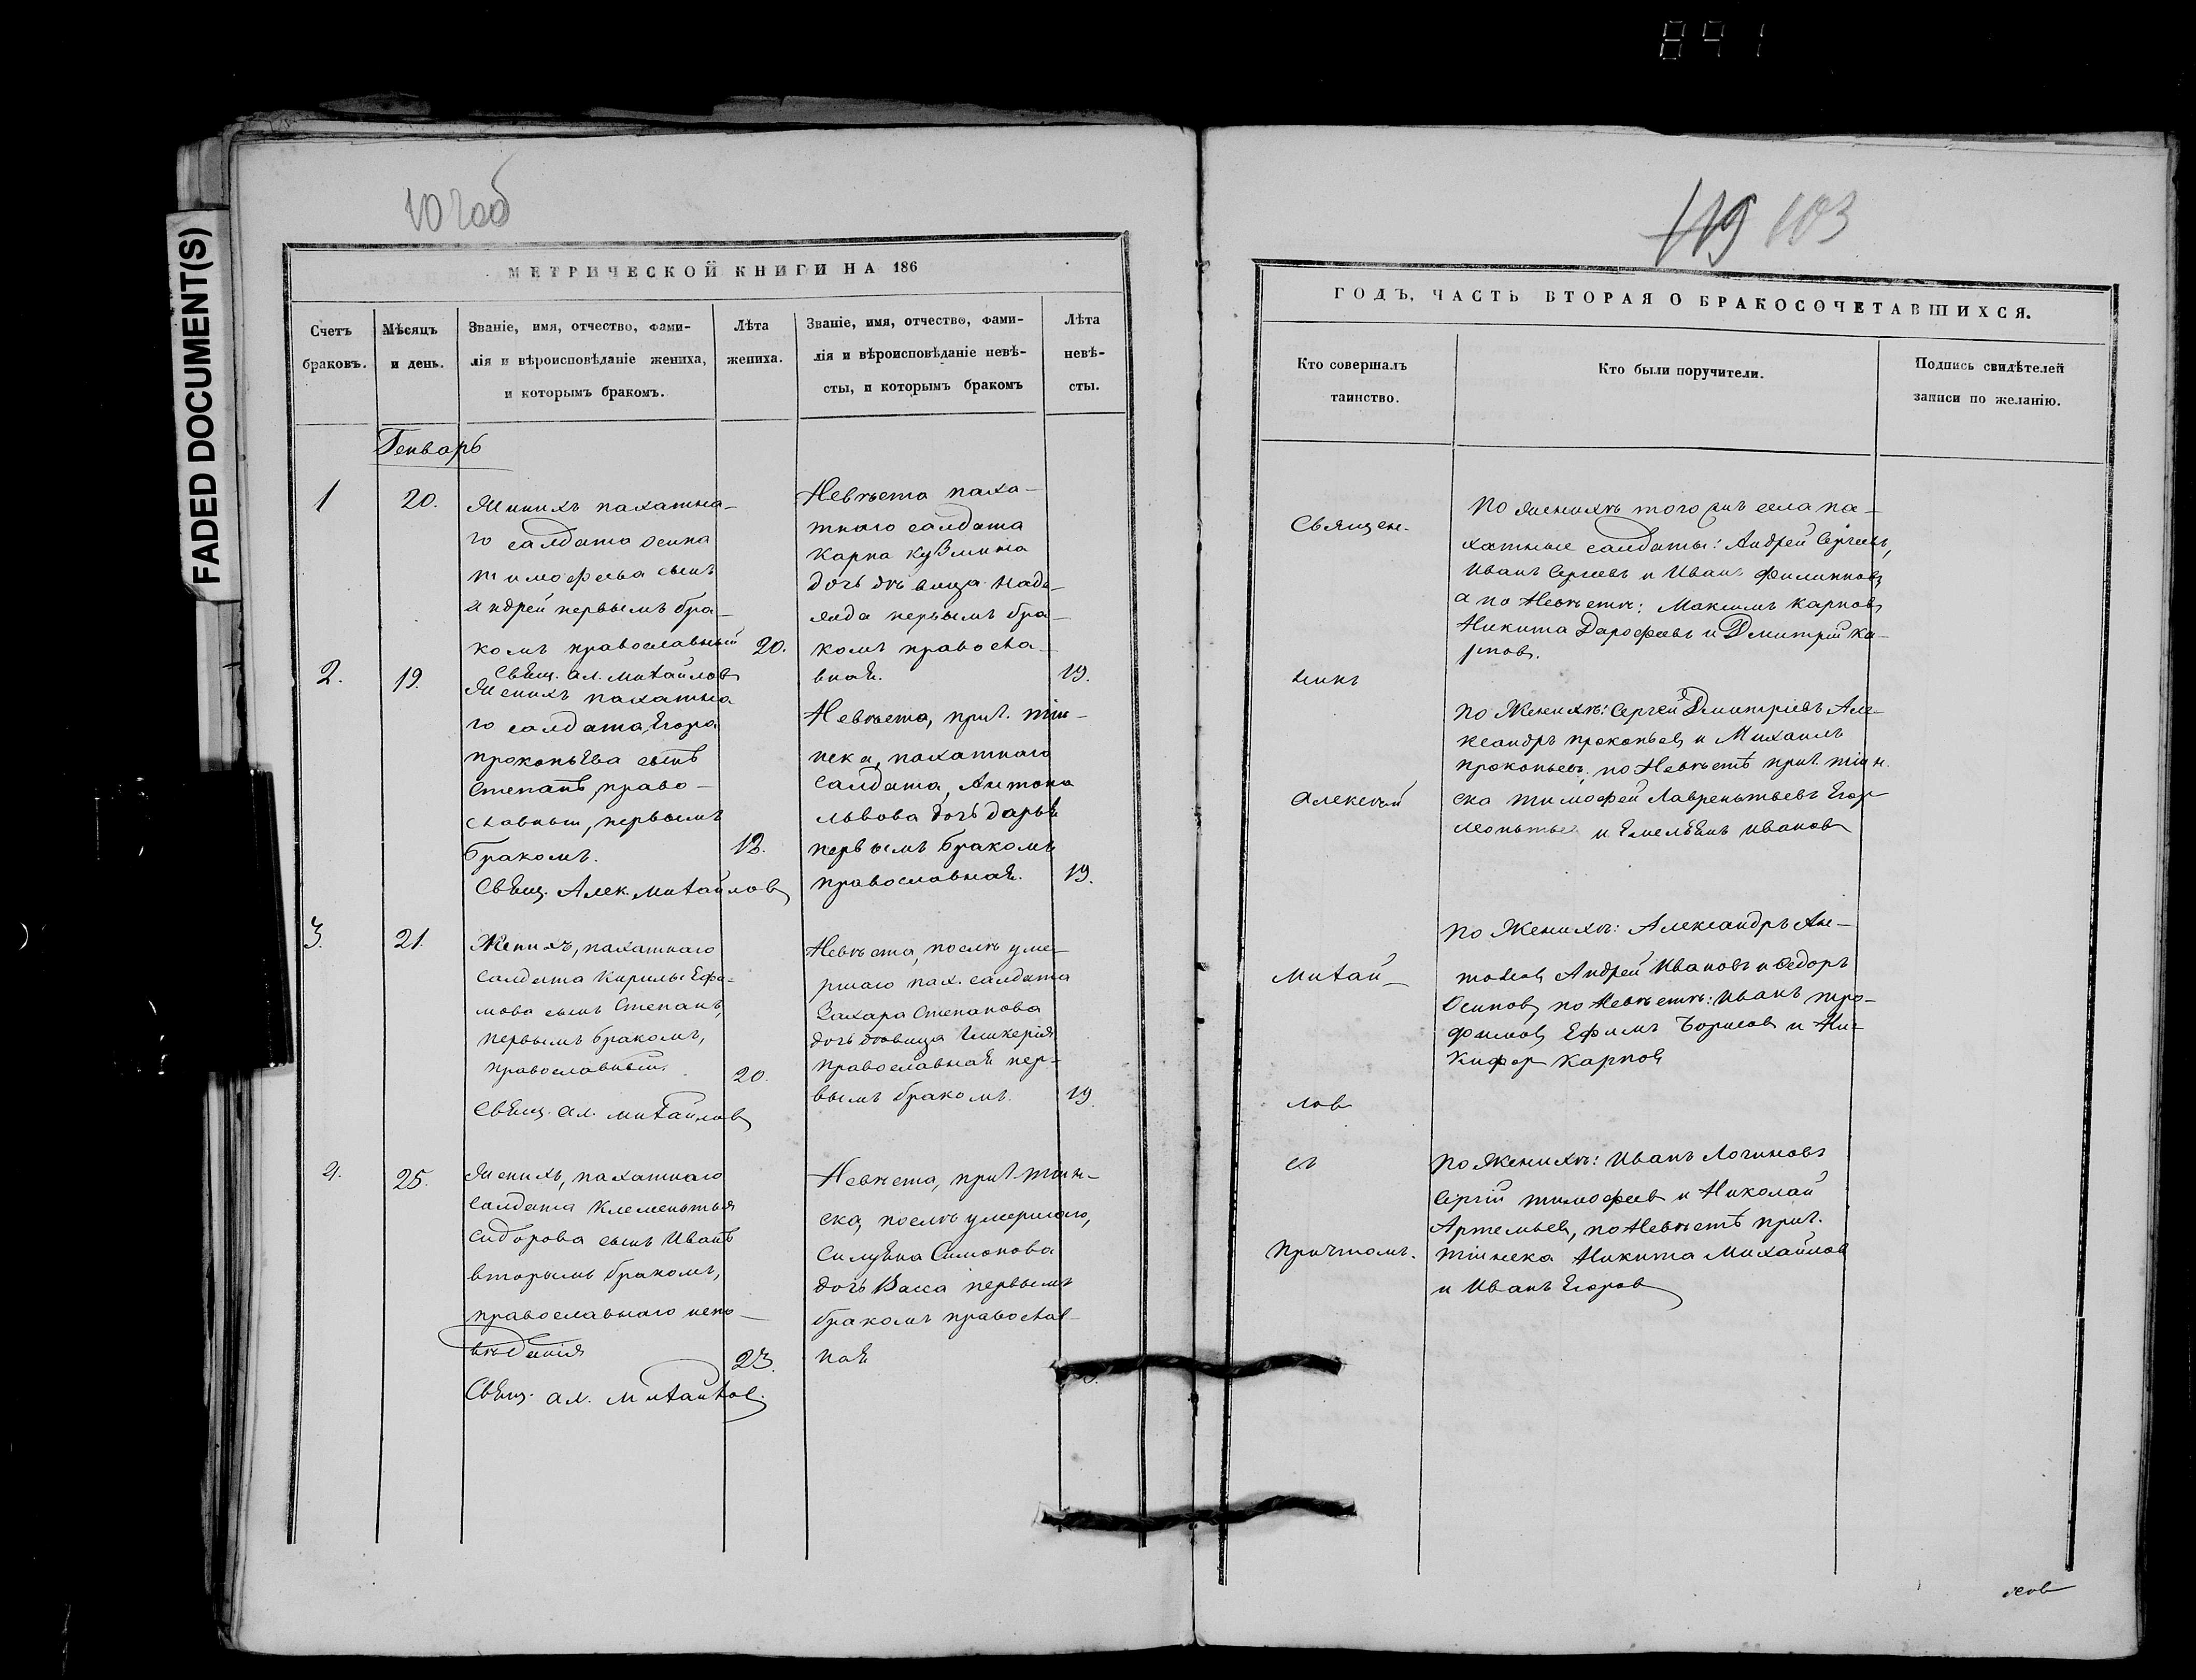 841
FADED DOCUMENT(S)
102об
МЕТРИЧЕСКОЙ КНИГИ НА 186
Счетъ браковъ.
Мѣсяцъ и день.
Званіе, имя, отчество, фами-
лія и вѣроисповѣданіе жениха,
и которымъ бракомъ.
Лѣта
жениха.
Званіе, имя, отчество, фами-
лія и вѣроисповѣданіе невѣ-
сты, и которымъ бракомъ
Лѣта
невѣ-
сты.
Генварь
1
20.
Женихъ пахатна-
го салдата Осипа
тимофеева сынъ
Андрей первымъ бра-
комъ православный
20.
Свящ. Ал. Михайлов
Невѣста паха-
тнаго салдата
Карпа Кузмина
дочь дѣвица Наде-
жда первымъ бра-
комъ правосла-
вная.
19.
2.
19.
Женихъ пахатна
го салдата Егора
прокопьева сынъ
Степанъ, право-
славный, первымъ
бракомъ.
Свящ. Алек. Михайлов
Невѣста, прих.
пахатнаго
Салдата, Антона
Львова дочь дарья
первымъ бракомъ
православная.
19.
3.
21.
Женихъ, пахатнаго
салдата Кирилы Ефи-
мова сынъ Степанъ,
первымъ бракомъ,
православный.
20.
Свящ. Ал. Михайлов
Невѣста, послѣ уме-
ршаго пах. салдата
Захара Степанова
дочь дѣвица Гликерія
православная пер-
вымъ бракомъ.
19.
4.
25.
Женихъ, пахатнаго
салдата Клементья
Сидорова сынъ Иванъ
вторымъ бракомъ,
православнаго испо-
вѣданія
23.
Свящ. Ал. Михайлов.
Невѣста, прих.
послѣ умершаго,
Силуяна Симонова
дочь Васса первымъ
бракомъ православ-
ная
119 103
ГОДЪ, ЧАСТЬ ВТОРАЯ О БРАКОСОЧЕТАВШИХСЯ.
Кто совершалъ
таинство.
Кто были поручители.
Подпись свидѣтелей
записи по желанію.
Священ-
никъ
Алексѣй
Михай-
лов
съ
причтомъ.
По женихѣ того жъ села па-
хатные салдаты: Андрей Сергеевъ,
Иванъ Сергеевъ и Иванъ Филиппов,
а по Невѣстѣ: Максимъ Карпов,
Никита Дарофеевъ и Дмитрій Ка-
рпов.
По Женихѣ: Сергей Дмитріевъ Але-
ксандръ прокопьев и Михаилъ
прокопьевъ, по Невѣстѣ прих.
тимофей Лаврентьевъ Егор
леонтьев и Емельянъ Иванов
По Женихѣ: Александръ Ан-
Андрей Ивановъ и Федоръ
Осипов, по Невѣстѣ: Иванъ тро-
фимов, Ефимъ Борисов и Ни-
кифор Карпов
По Женихѣ: Иванъ Логиновъ
Сергій тимофеев и Николай
Артемьев, по Невѣстѣ прих.
Никита Михайлов
и Иванъ Егоров